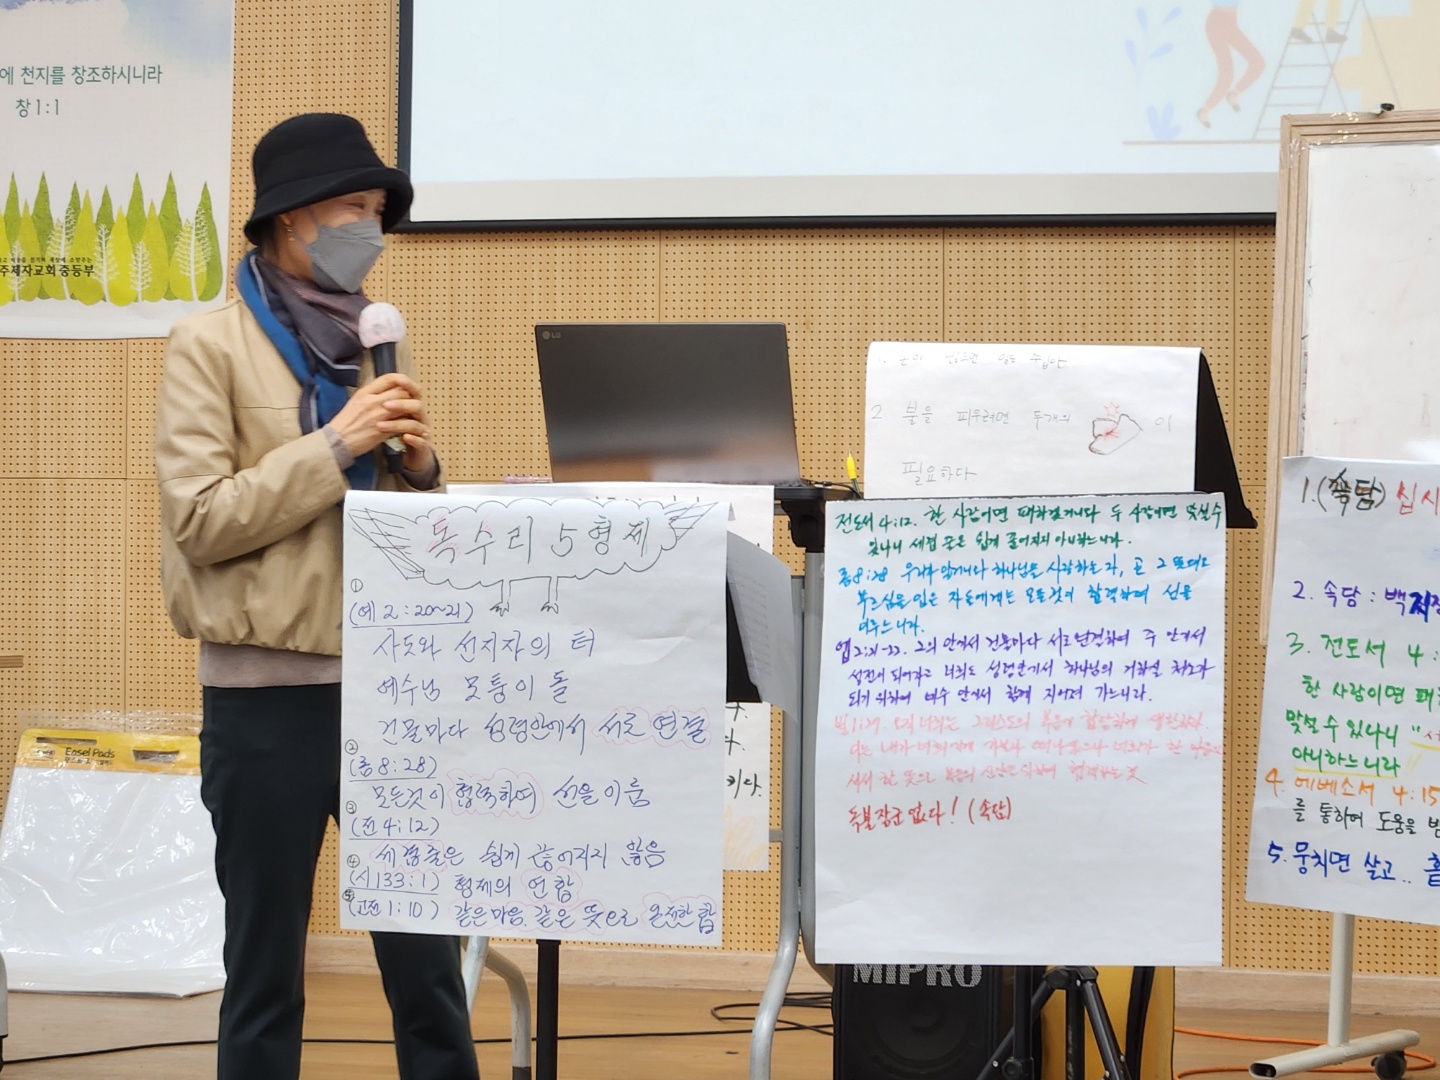 에 천지를 창조하시니라
창 1:1
주제자교회 중등부
LG
2 불을 피우려면 두개의 이
필요하다
독수리 5형제
①
(에 2:20~21)
사도와 선지자의 터
예수님 모퉁이 돌
건물마다 성령안에서 서로 연결
②
(롬 8:28)
모든것이 협력하여 선을 이룸
③
(전 4:12)
세겹줄은 쉽게 끊어지지 않음
④
(시 133:1) 형제의 연합
⑤
(고전 1:10) 같은마음, 같은 뜻으로 온전한 합
전도서 4:12. 한 사람이면 패하겠거니와 두 사람이면 맞설수
있나니 세겹 줄은 쉽게 끊어지지 아니하느니라.
롬 8:28 우리가 알거니와 하나님을 사랑하는 자, 곧 그 뜻대로
부르심을 입은 자들에게는 모든것이 합력하여 선을
이루느니라.
엡 2:21-22. 그의 안에서 건물마다 서로 연결하여 주 안에서
성전이 되어가고 너희도 성령안에서 하나님의 거하실 처소가
되기 위하여 예수 안에서 함께 지어져 가느니라.
빌 1:27. 너희는 그리스도의 복음에 합당하게 생활하라.
독불장군 없다! (속담)
Easel Pads
키다.
MIPRO
1. (속담) 십시
2. 속담 : 백지장
3. 전도서 4:
한 사람이면 패
맞설 수 있나니 "
아니하느니라
4. 에베소서 4:15
를 통하여 도움을 받
5. 뭉치면 살고..